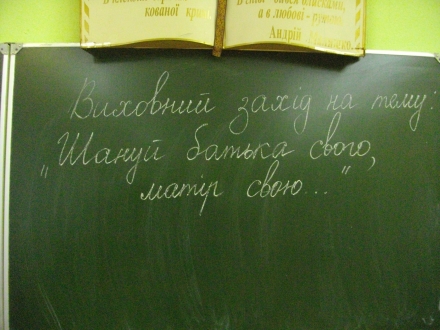 кованої
а в любові -
Андрій
Виховний захід на тему:
„Шануй батька свого,
матір свою..."